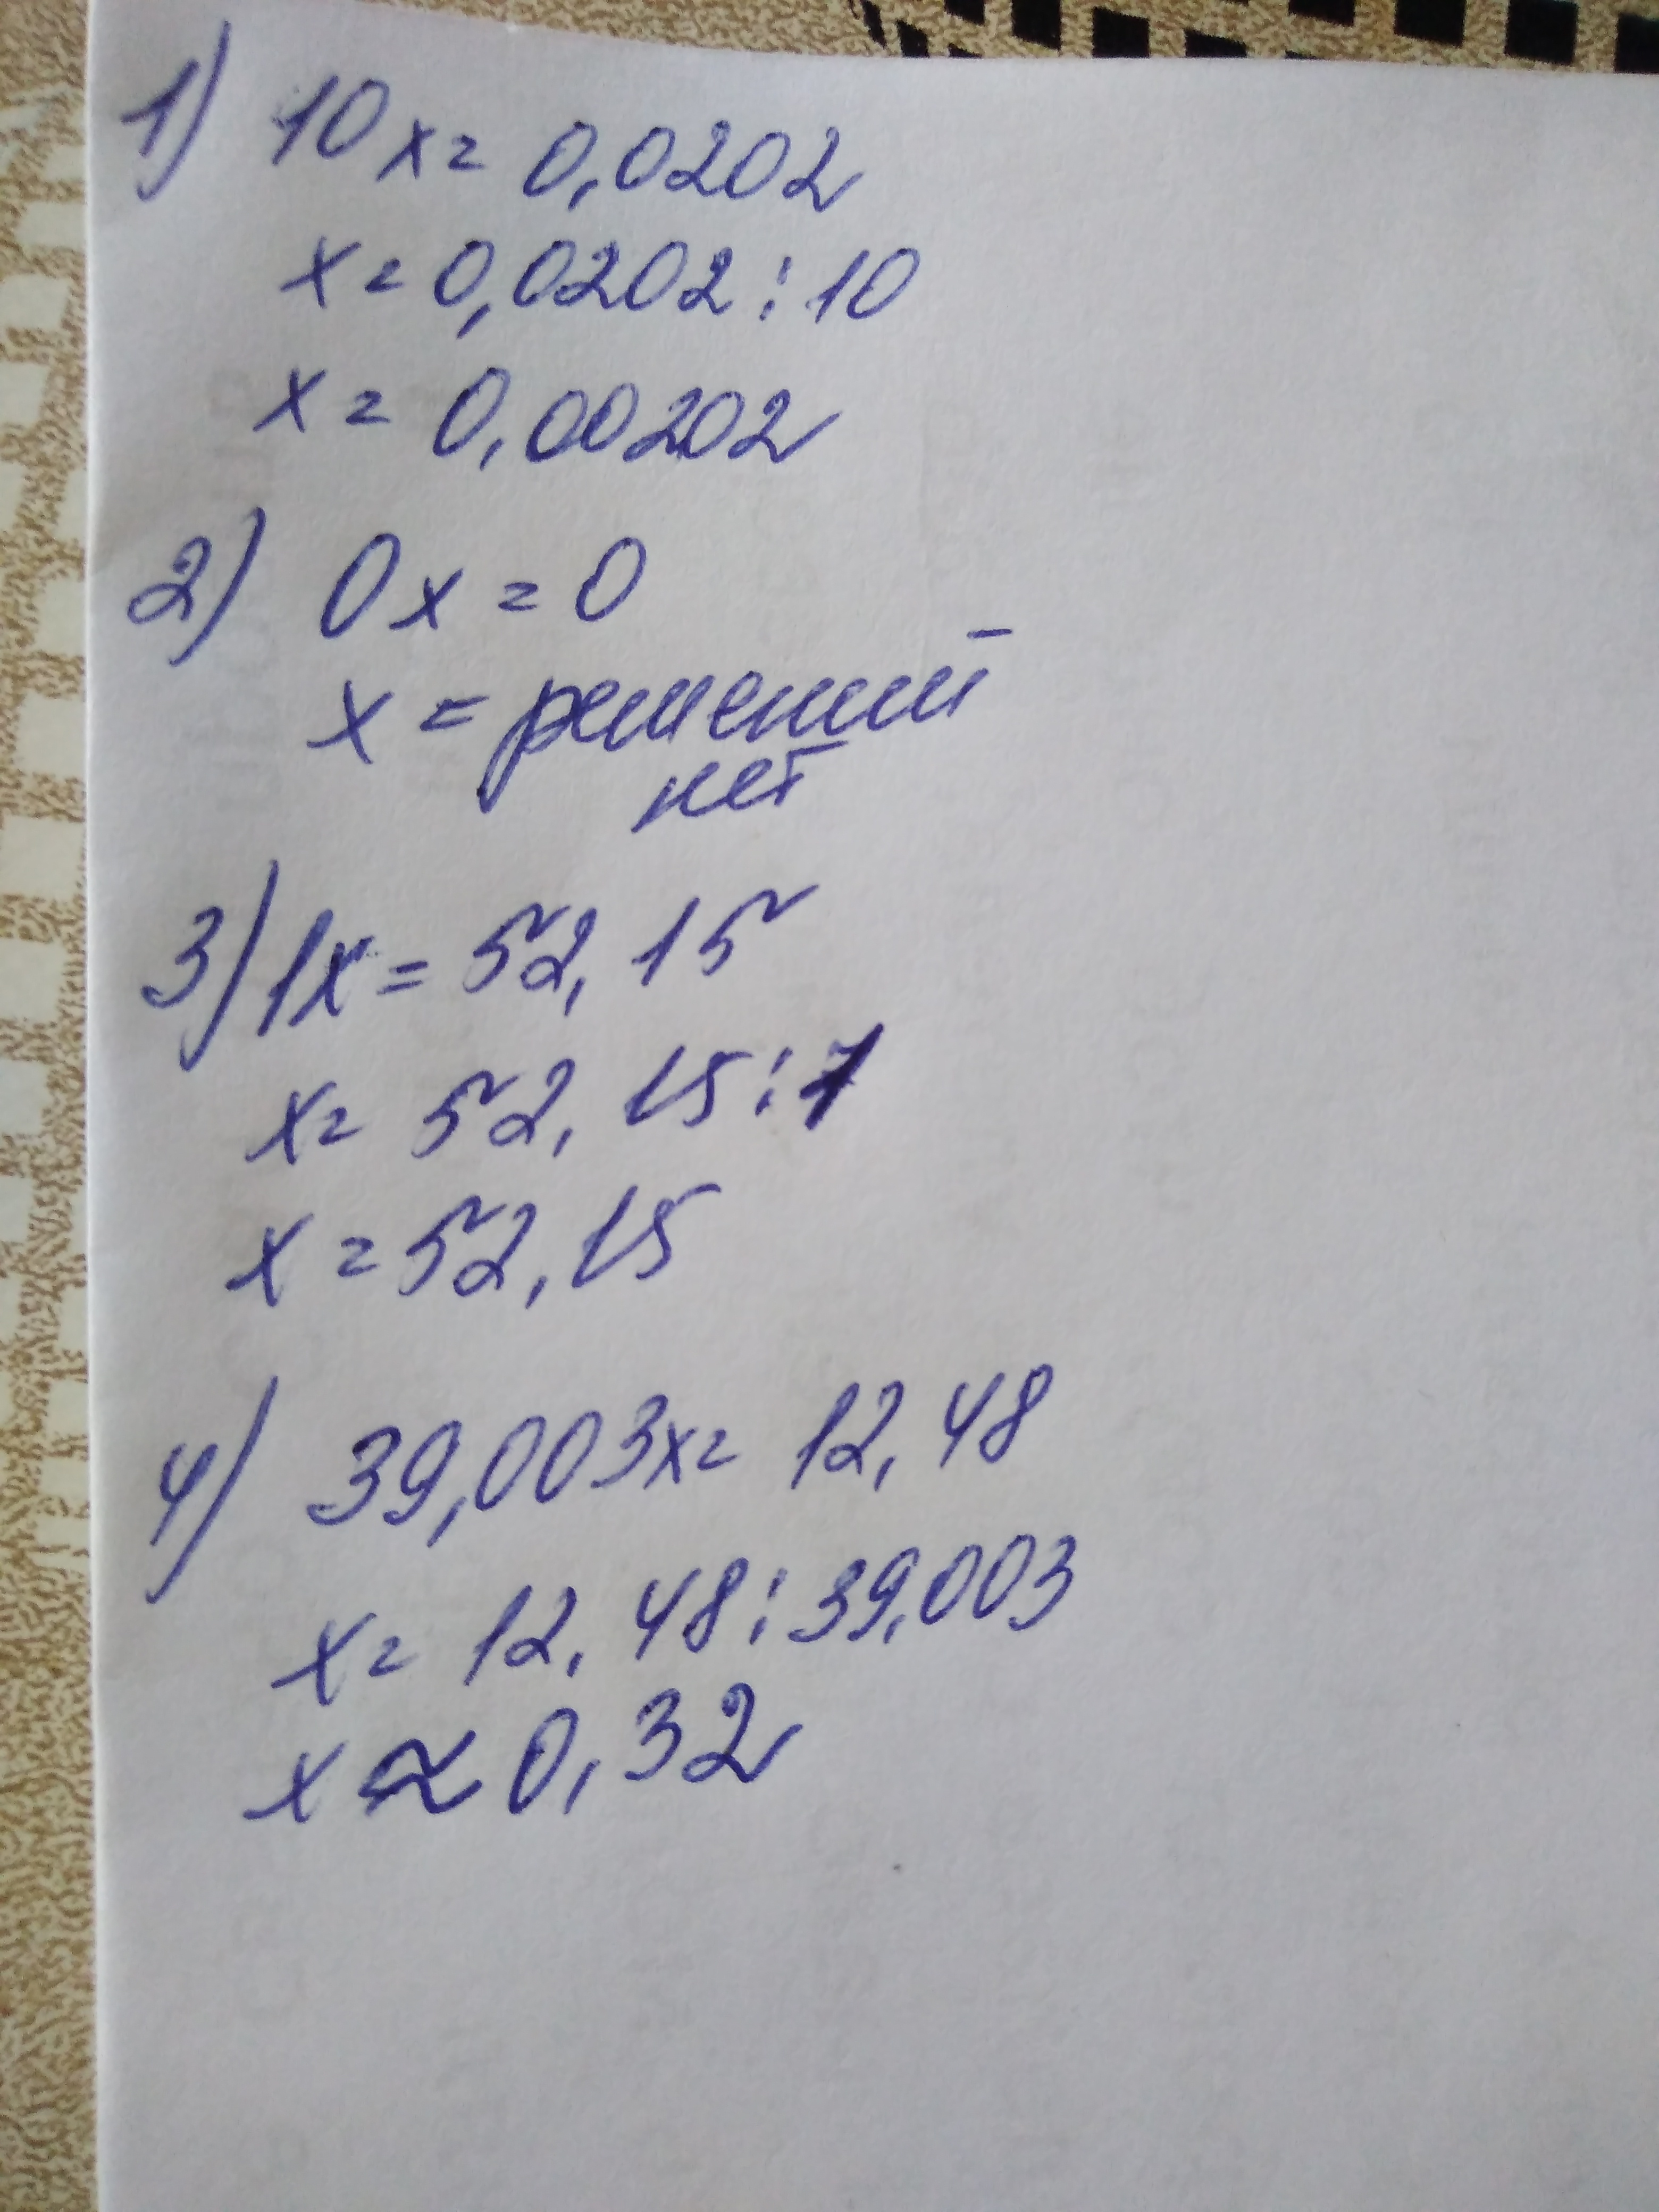 1) 10x = 0,0202
x = 0,0202 : 10
x = 0,00202
2) 0x = 0
x = решений
нет
3) 1x = 52,15
x = 52,15 : 1
x = 52,15
4) 39,003x = 12,48
x = 12,48 : 39,003
x ≈ 0,32